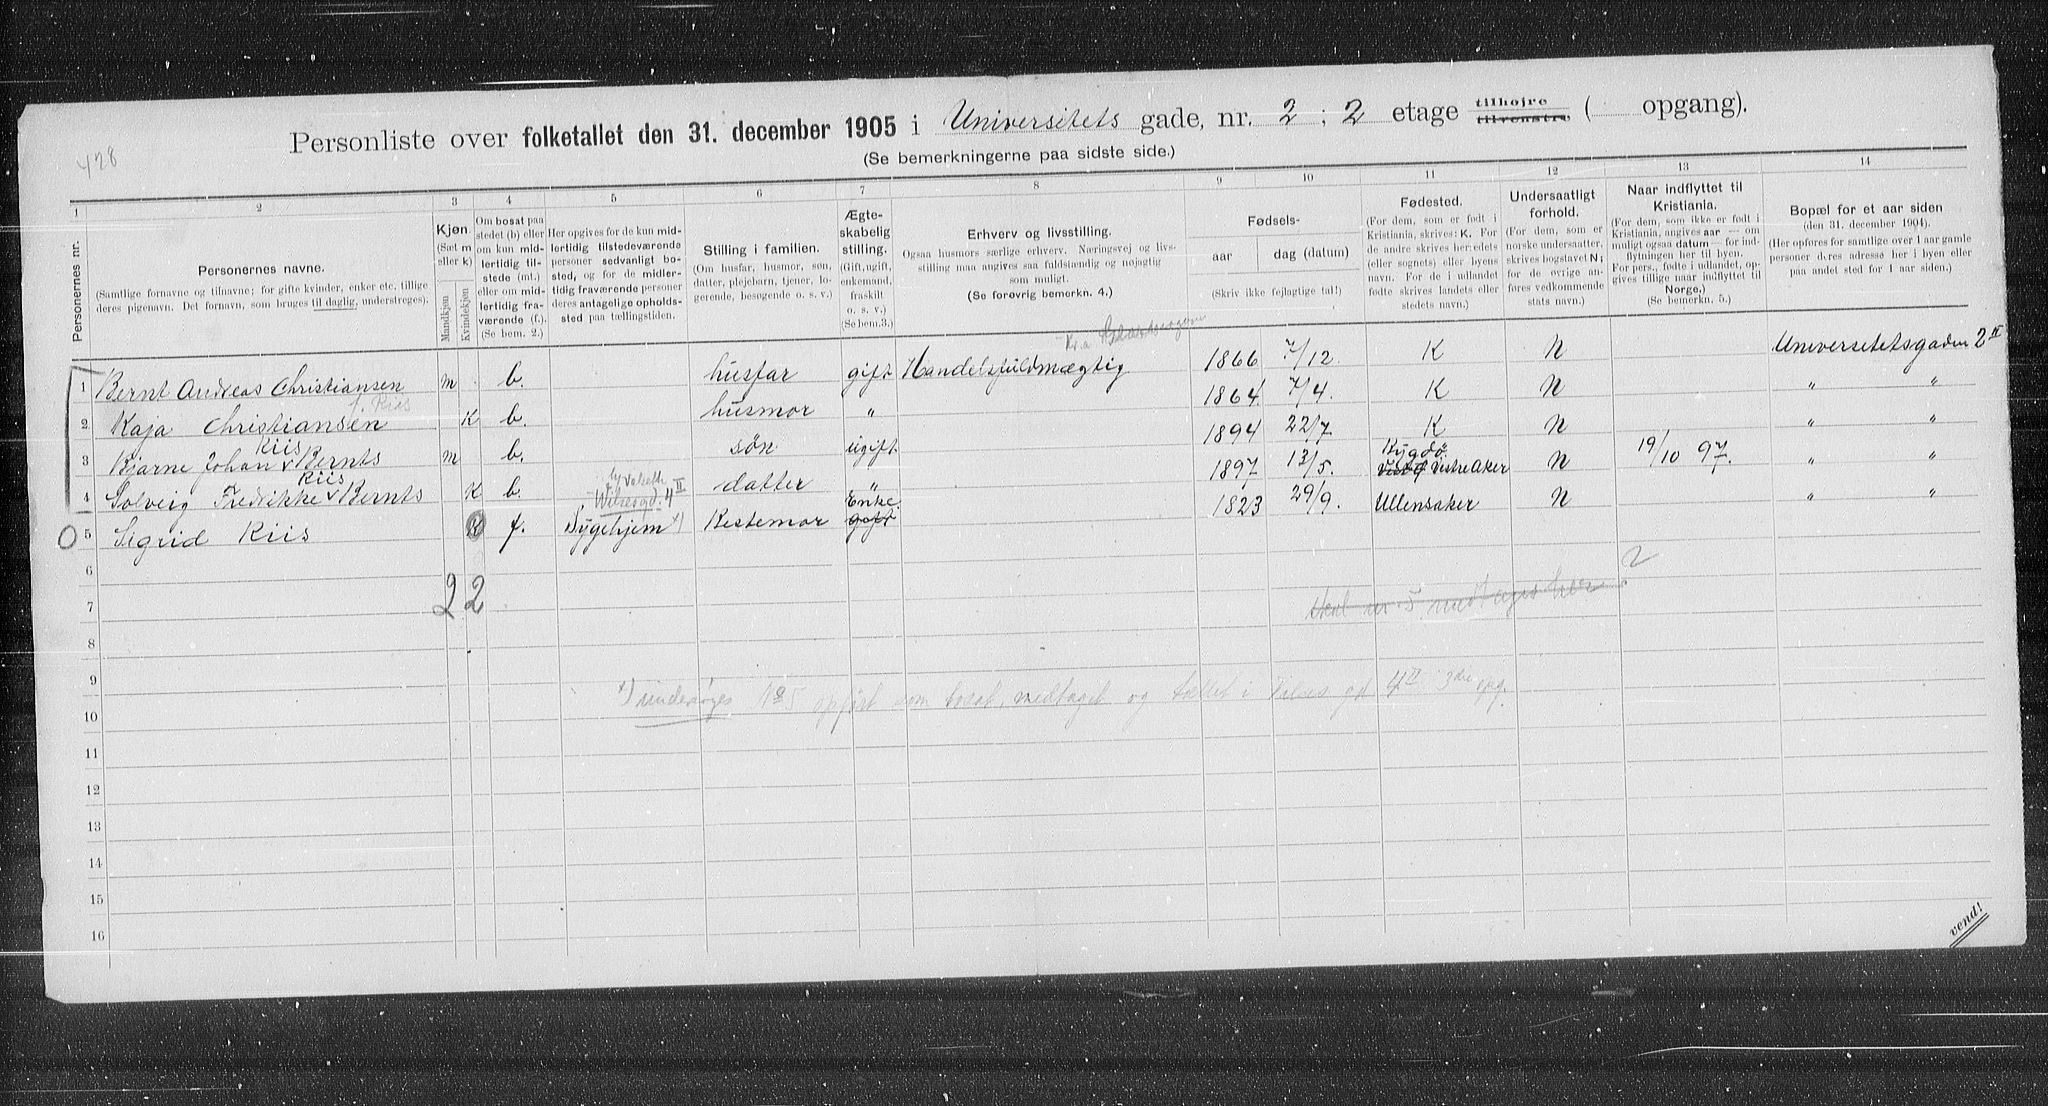 428
Personliste over folketallet den 31. december 1905 i Universitets gade, nr. 2 ; 2 etage tilhøjre tilvenstre ( opgang).
(Se bemerkningerne paa sidste side.)
1 2 3 4 5 6 7 8 9 10 11 12 13 14
Personernes nr.
Personernes navne.
(Samtlige fornavne og tilnavne; for gifte kvinder, enker etc. tillige
deres pigenavn. Det fornavn, som bruges til daglig, understreges).
Kjøn.
(Sæt m
eller k)
Mandkjøn
Kvindekjøn
Om bosat paa
stedet (b) eller
om kun mid-
lertidig til-
stede (mt.)
eller om mid-
lertidig fra-
værende (f.).
(Se bem. 2.)
Her opgives for de kun mid-
lertidig tilstedeværende
personer sedvanligt bo-
sted, og for de midler-
tidig fraværende personer
deres antagelige opholds-
sted paa tællingstiden.
Stilling i familien.
(Om husfar, husmor, søn,
datter, plejebarn, tjener, lo-
gerende, besøgende o. s. v.)
Ægte-
skabelig
stilling.
(Gift, ugift,
enkemand,
fraskilt
o. s. v.)
(Se bem. 3.)
Erhverv og livsstilling.
Ogsaa husmors særlige erhverv. Næringsvej og livs-
stilling maa angives saa fuldstændig og nøjagtig
som muligt.
(Se forøvrig bemerkn. 4.)
Fødsels-
aar
dag (datum)
(Skriv ikke fejlagtige tal!)
Fødested.
(For dem, som er født i
Kristiania, skrives: K. For
de andre skrives herredets
(eller sognets) eller byens
navn. For de i udlandet
fødte skrives landets eller
stedets navn.)
Undersaatligt
forhold.
(For dem, som er
norske undersaatter,
skrives bogstavet N;
for de øvrige an-
føres vedkommende
stats navn.)
Naar indflyttet til
Kristiania.
(For dem, som ikke er født i
Kristiania, angives aar — om
muligt ogsaa datum — for ind-
flytningen her til byen.
For pers., fødte i udlandet, op-
gives tillige aar indflyttet til
Norge.)
(Se bemerkn. 5.)
Bopæl for et aar siden
(den 31. december 1904).
(Her opføres for samtlige over 1 aar gamle
personer deres adresse her i byen eller
paa andet sted for 1 aar siden.)
1 Bernt Andreas Christiansen m b. husfar gift Handelsfuldmægtig 1866 7/12. K N Universitetsgaden 2 II
f. Riis
2 Kaja Christiansen K b. husmor " 1864 7/4. K N " "
Riis
3 Bjarne Johan v Bernts m b. søn ugift. 1894 22/7 K N " "
Riis
4 Solveig Fredrikke v Bernts K b. datter " 1897 13/5. Bygdø Vestre Aker N 19/10 97. " "
Wilsesgd. 4 II
Enke
5 Sigrid Riis K f. Sygehjem x) Bestemor gift 1823 29/9. Ullensaker N " "
6
2 2
7 skal nr 5 medtages her ?
8
9
x) undersøges No 5 opført som bosat, medtaget og tællet i Vilses gd 4 II 3die opg.
10
11
12
13
14
15
16
vend!